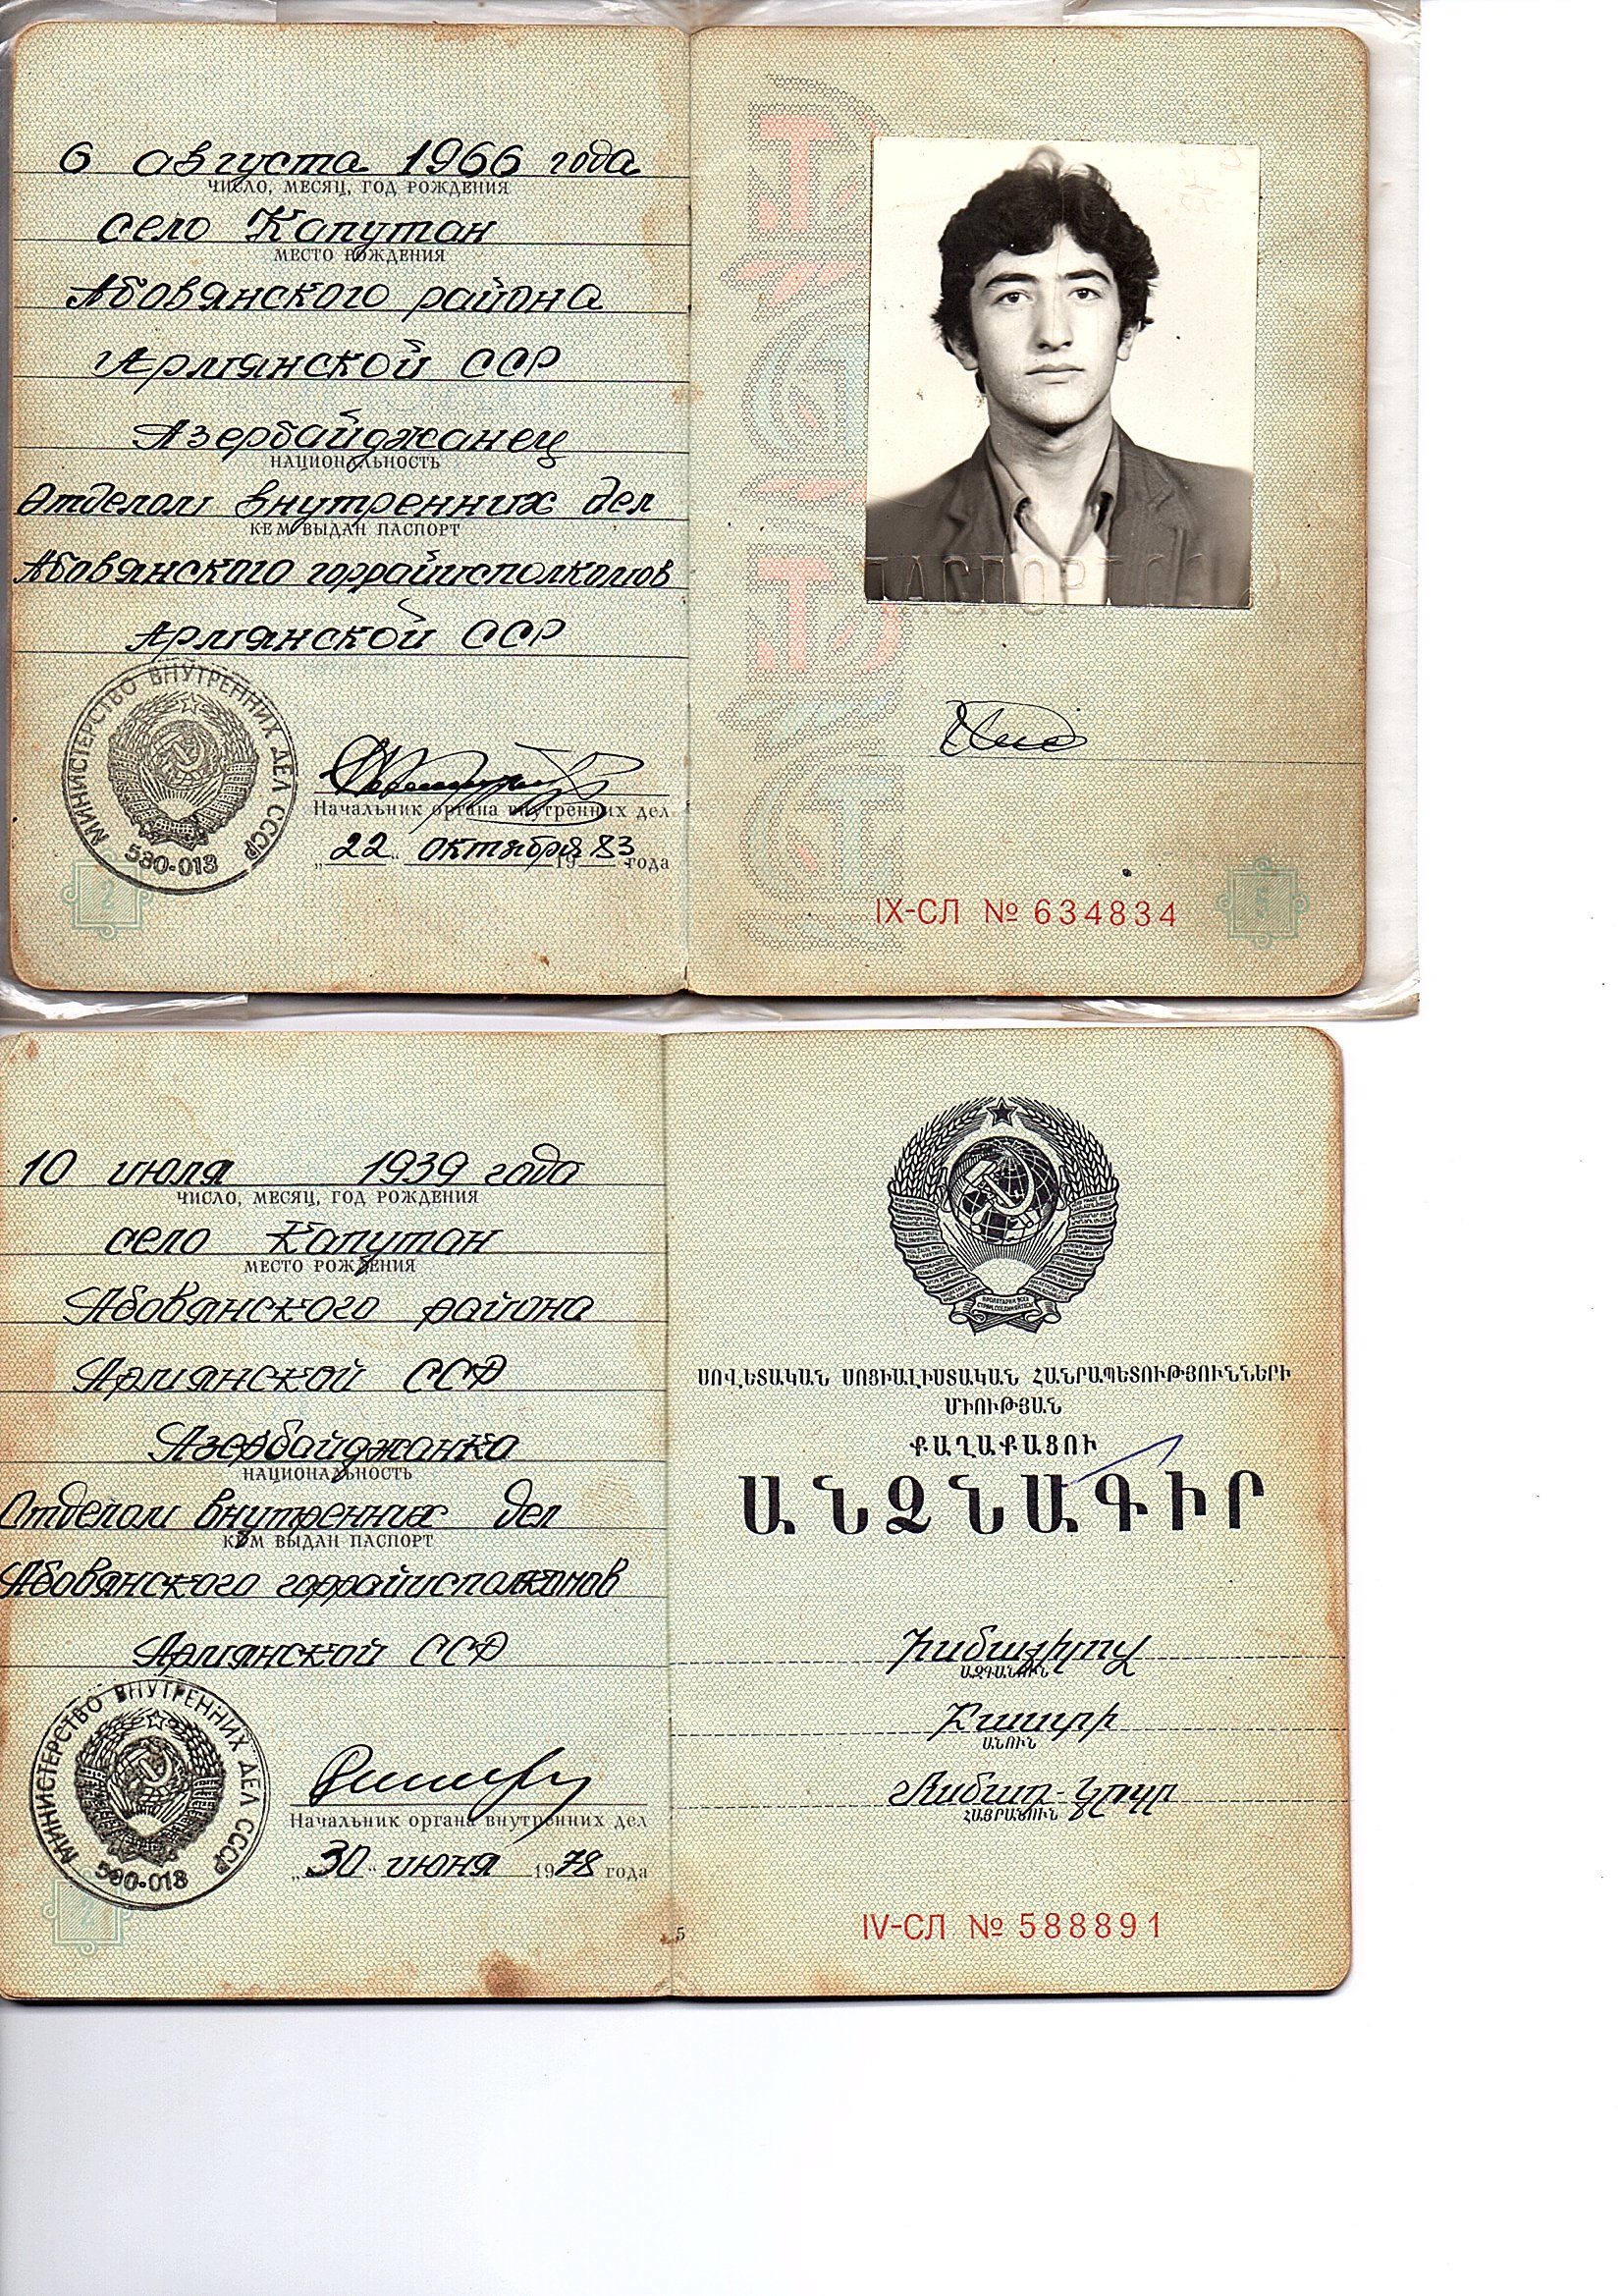 6 августа 1966 года
ЧИСЛО, МЕСЯЦ, ГОД РОЖДЕНИЯ
село Капутан
МЕСТО РОЖДЕНИЯ
Абовянского района
Армянской ССР
Азербайджанец
НАЦИОНАЛЬНОСТЬ
Отделом внутренних дел
КЕМ ВЫДАН ПАСПОРТ
Абовянского горрайисполкомов
Армянской ССР
МИНИСТЕРСТВО ВНУТРЕННИХ ДЕЛ СССР
530-013
Начальник органа внутренних дел
„22“ октября 1983 года
2
ПАСПОРТ
IX-СЛ № 634834
5
10 июля 1939 года
ЧИСЛО, МЕСЯЦ, ГОД РОЖДЕНИЯ
село Капутан
МЕСТО РОЖДЕНИЯ
Абовянского района
Армянской ССР
Азербайджанка
НАЦИОНАЛЬНОСТЬ
Отделом внутренних дел
КЕМ ВЫДАН ПАСПОРТ
Абовянского горрайисполкомов
Армянской ССР
МИНИСТЕРСТВО ВНУТРЕННИХ ДЕЛ СССР
590-013
Начальник органа внутренних дел
„30“ июня 1978 года
2
ՍՈՎԵՏԱԿԱՆ ՍՈՑԻԱԼԻՍՏԱԿԱՆ ՀԱՆՐԱՊԵՏՈՒԹՅՈՒՆՆԵՐԻ
ՄԻՈՒԹՅԱՆ
ՔԱՂԱՔԱՑՈՒ
ԱՆՁՆԱԳԻՐ
ԱԶԳԱՆՈՒՆ
ԱՆՈՒՆ
ՀԱՅՐԱՆՈՒՆ
5
IV-СЛ № 588891